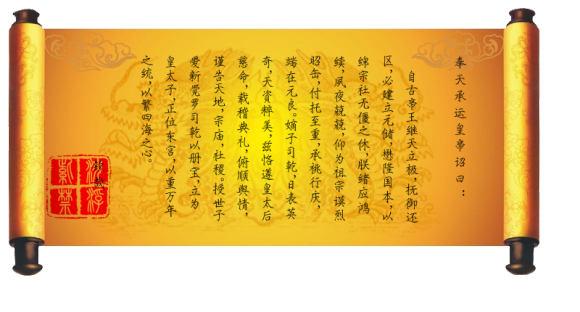 奉天承运皇帝诏曰：
自古帝王继天立极，抚御还
区，必建立元储，懋隆国本，以
绵宗社无僵之休，朕绪应鸿
续，夙夜兢兢，仰为祖宗谟烈
昭缶，付托至重，承祧行庆，
端在元良。嫡子司乾，日表英
奇，天资粹美，兹恪遵皇太后
慈命，载稽典礼，俯顺舆情，
谨告天地，宗庙，社稷。授世子
爱新觉罗司乾以册宝，立为
皇太子，正位东宫，以重万年
之统，以繁四海之心。